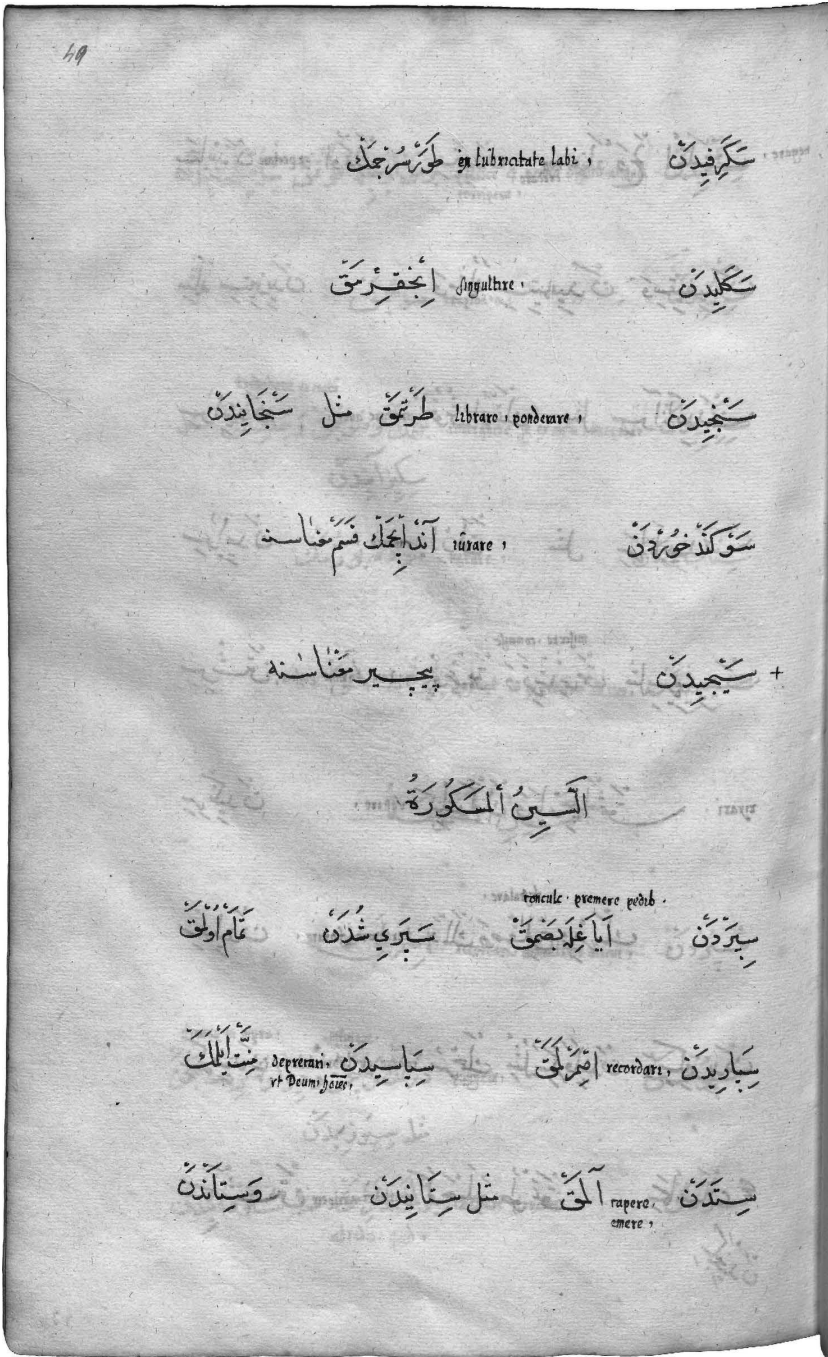 49
سَكَرفِيدَنْ ex lubricitate labi, طَوَرْ سُرْجمَكْ
سَكَلِيدَنْ singultire, اِنْجْقِرْمَقْ
سَنْجِيدَنْ librare, ponderare, طَرْتمَقْ مثل سَنْجَانِيدَنْ
سَوْكَنْدْ خُورْدَنْ iurare, آنْدْ اِيچمَكْ قَسَمْ مَعْنَاسنه
+ سَيْجِيدَنْ پيچـيـر مَعْنَاسْنه
اَلسِّينُ اَلْمَكْسُورَةُ
سِپَرْدَنْ conculc. premere pedib. اَيَاغِلَه بَصْمَقْ سَپَرِي شُدَنْ تمَامْ اُولْمَقْ
سِپَارِيدَنْ recordari, اصْمَرْلَمَقْ سِپَاسِيدَنْ deprecari, مِنَّتْ اَيْلَمَكْ
vt Deum, hoies,
سِتَدَنْ rapere, آلْمَقْ مثل سِتَانِيدَنْ وَسِتَانْدَنْ
emere,